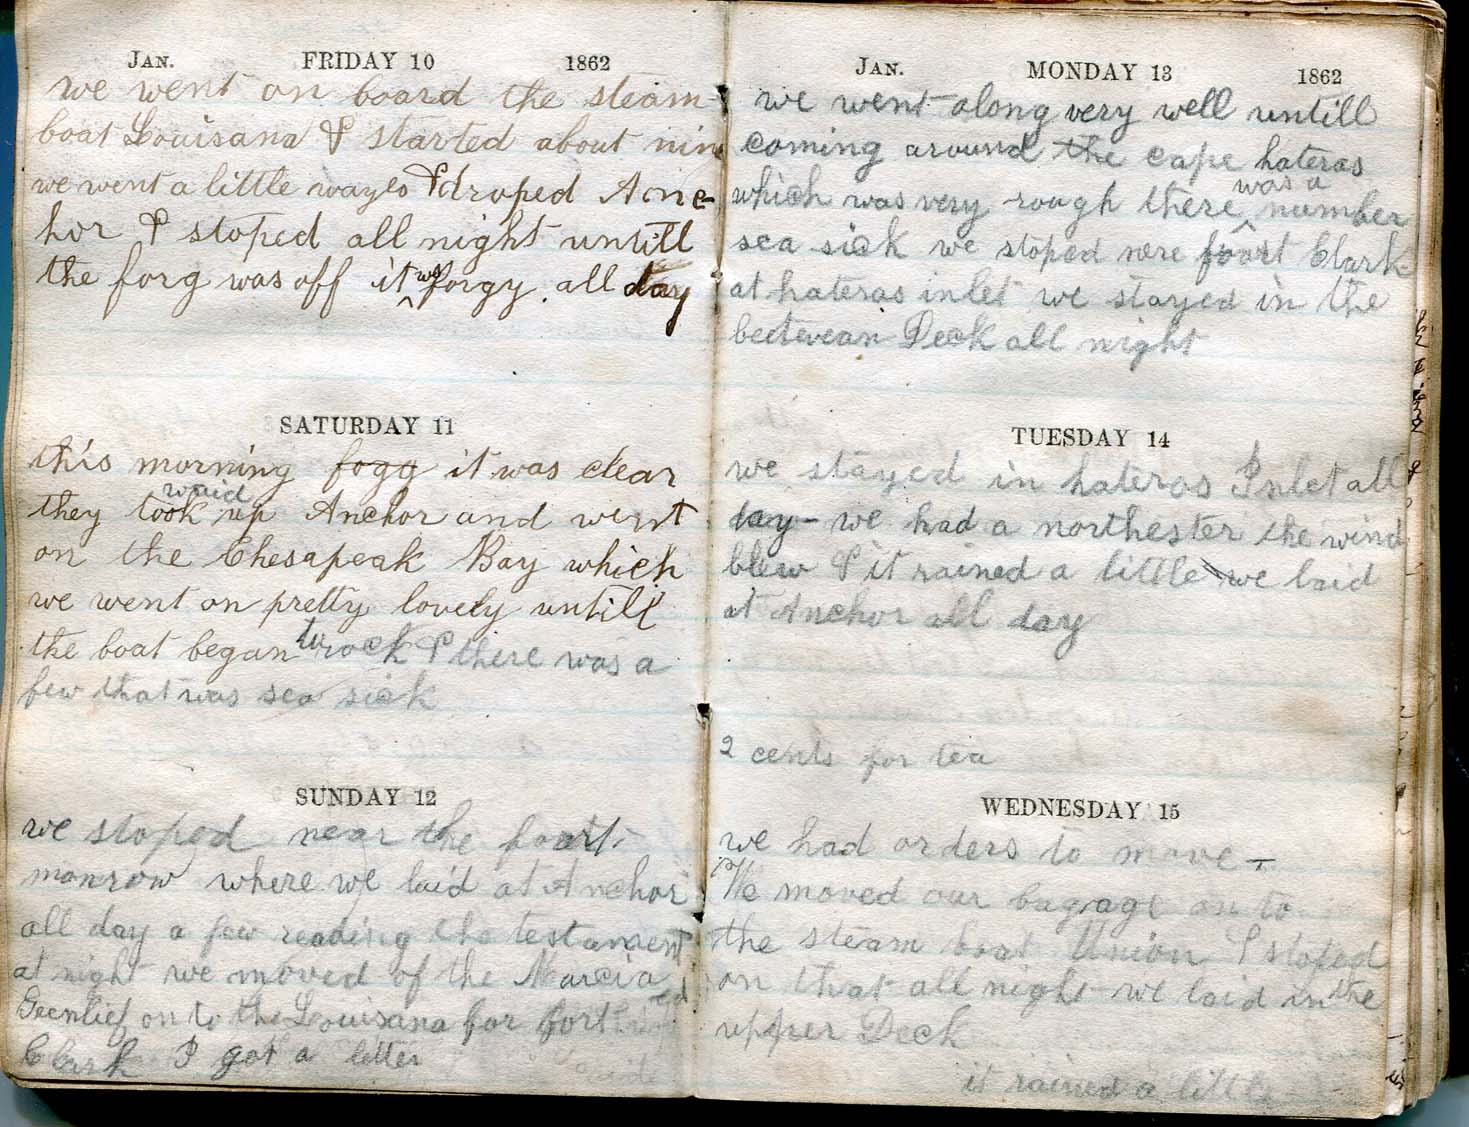 JAN. FRIDAY 10 1862
we went on board the steam
boat Louisana & started about nin
we went a little wayes & droped Anc-
hor & stoped all night untill
the forg was off it was forgy all day
SATURDAY 11
this morning fogg it was clear
they took waid up Anchor and went
on the Chesapeak Bay which
we went on pretty lovely untill
the boat began to rock & there was a
few that was sea sick
SUNDAY 12
we stoped near the foart
monrow where we laid at Anchor
all day a few reading the testament
at night we moved of the Marcia
Geenlief on to the Louisana for fort
Clark I got a letter
JAN. MONDAY 13 1862
we went along very well untill
coming around the cape hateras
which was very rough there was a number
sea sick we stoped nere foart Clark
at hateras inlet we stayed in the
beetwean Deck all night
TUESDAY 14
we stayed in hateras Inlet all
day - we had a northester the wind
blew & it rained a little we laid
at Anchor all day
2 cents for tea
WEDNESDAY 15
we had orders to move -
We moved our bagage on to
the steam boat Union & stoped
on that all night we laid in the
upper Deck
it rained a little